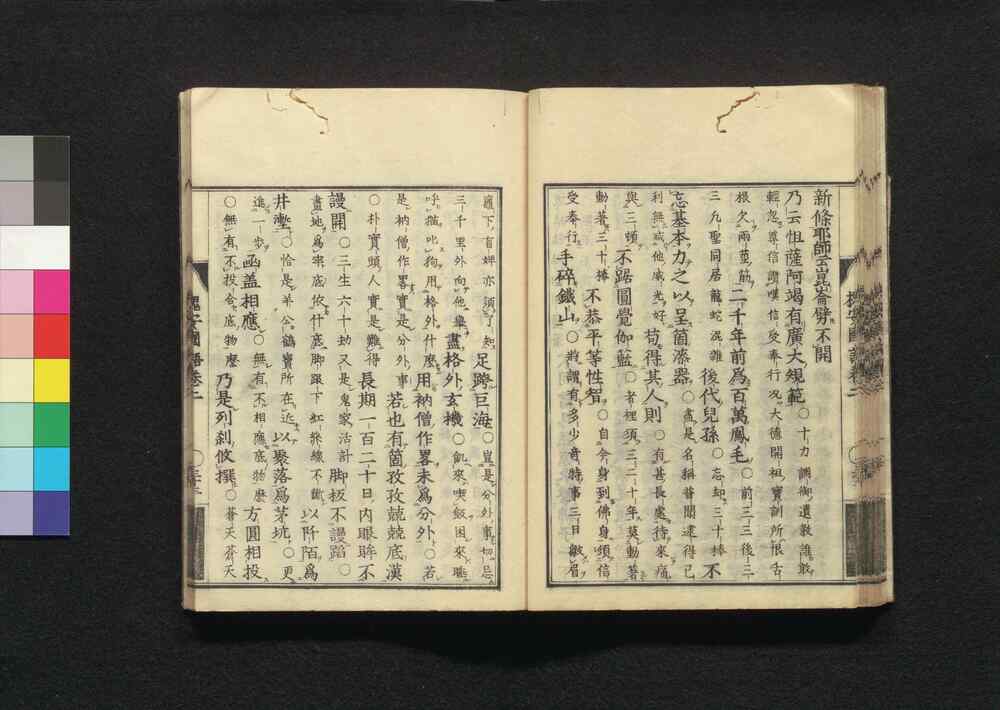 新條耶師云崑崙劈不開
乃云怛薩阿竭有廣大規範○十力調御遺敎誰敢
輕忽尊信讃嘆信受奉行況大德開祖寶訓所恨舌
根欠兩莖筋二千年前爲百萬鳳毛○前三三後三
三九聖同居龍蛇混雜後代兒孫○忘却三十棒不
忘基本力之以呈箇漆器○盡是名稱普聞逮得己
利無或他威光好苟得其人則○有甚長處待來痛
與三頓不踞圓覺伽藍○者裡須三二十年莫動著
動著三十棒不恭平等性智○自今身到佛身須信
受奉行手碎鐵山○將謂有多少奇特事三日皺眉
竈下盲婢亦須了知足跨巨海○豈是分外事切忌
三千里外向他擧盡格外玄機○飢來喫飯困來眠
呼猫叱狗用格外什麼用衲僧作畧未爲分外○若
是衲僧作畧實是分外事若也有箇孜孜兢兢底漢
○朴實頭人實是難得長期一百二十日内眼眸不
謾開○三生六十劫又是鬼家活計脚板不謾蹈○
畫地爲牢底依什底脚跟下紅絲線不斷以阡陌爲
井壍○恰是羊公鶴寶所在近以聚落爲茅坑○更
進一歩函盖相應○無有不相應底物麼方圓相投
○無有不投合底物麼乃是列刹攸撰○蒼天蒼天